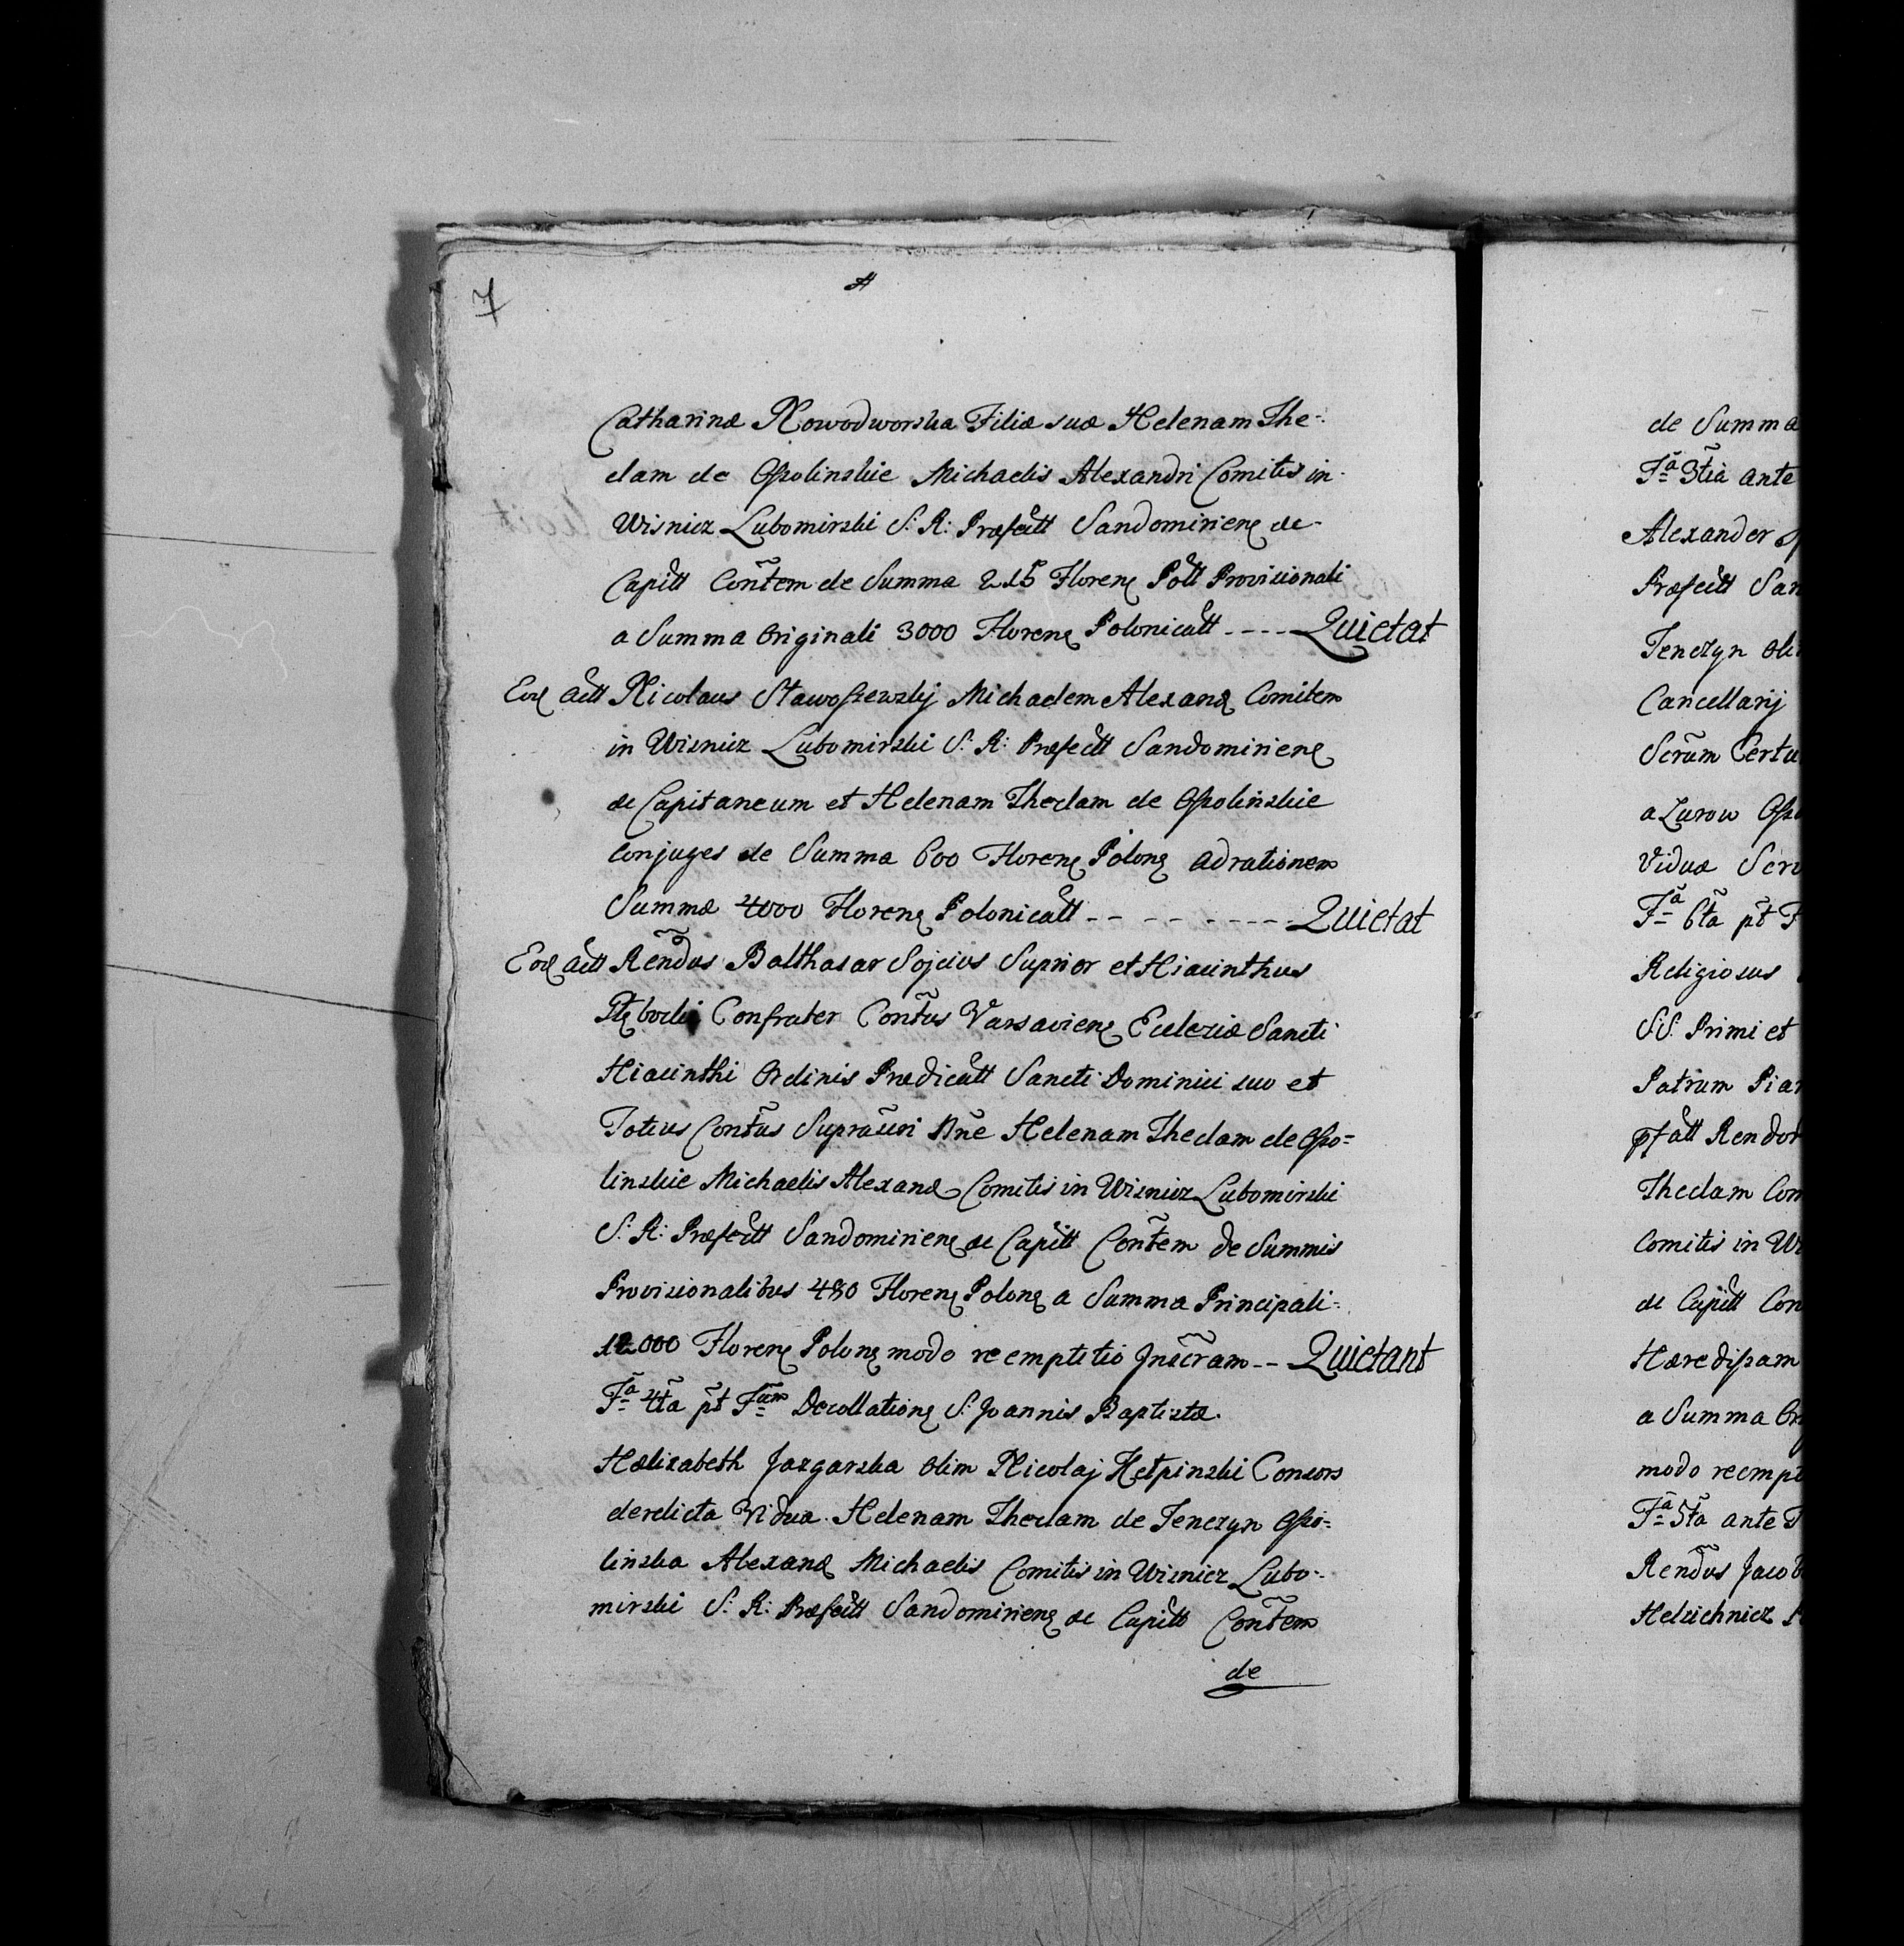 7
Catharinæ Nowodworska Filiæ suæ Helenam The-
clam de Ossolinskie Michaelis Alexandri Comitis in
Wisnicz Lubomirski S: R: Præfectt Sandomirienę ac
Capitt Cont̃em de Summa 215 Florenę Poltt Provisionali
a Summa Originali 3000 Florenę Polonicaltt ---- Quietat
Eod actt Nicolaus Stawoszewskij Michaelem Alexand Comitem
in Wisnicz Lubomirski S: R: Præfectt Sandomirienę
ac Capitaneum et Helenam Theclam de Ossolinskie
Conjuges de Summa 600 Florenę Polonę ad rationem
Summæ 4000 Florenę Polonicaltt - - - - ----- Quietat
Eod actt Rend̃us Balthasar Sojcius Suprior et Hiacinthus
Confrater Cont̃us Varsavienę Eclesiæ Sancti
Hiacinthi Ordinis Prædicatt Sancti Dominici suo et
Totius Cont̃us Suprascri Nñe Helenam Theclam de Osso=
linskie Michaelis Alexand Comitis in Wisnicz Lubomirski
S: R: Præfectt Sandomirienę ac Capitt Cont̃em de Summis
Provisionalibus 480 Florenę Polonę a Summa Principali
12000 Florenę Polonę modo reemptitio Inscr̃am -- Quietant
F̃a 4ta p̃t F̃um Decollationę S: Joannis Baptistæ.
Hælizabeth Jazgarska olim Nicolaj Hetpinski Consors
derelicta Vidua Helenam Theclam de Tenczyn Osso=
linska Alexand Michaelis Comitis in Wisnicz Lubo-
mirski S: R: Præfectt Sandomirienę ac Capitt Cont̃em
de
de Summa
F̃a 3tia ante
Alexander
Præfectt San
Tenczyn oli
Cancellarij
Scr̃um Certu
a Zurow Oss
Viduæ Scr
F̃a 6ta p̃t F
Religiosus
S.S. Primi et
Patrum Piar
Rendor
Theclam Con
Comitis in Wi
ac Capitt Con
Hæredissam
a Summa Or
modo reempt
F̃a 5ta ante F
Rend̃us Jacob
Helzichnicz